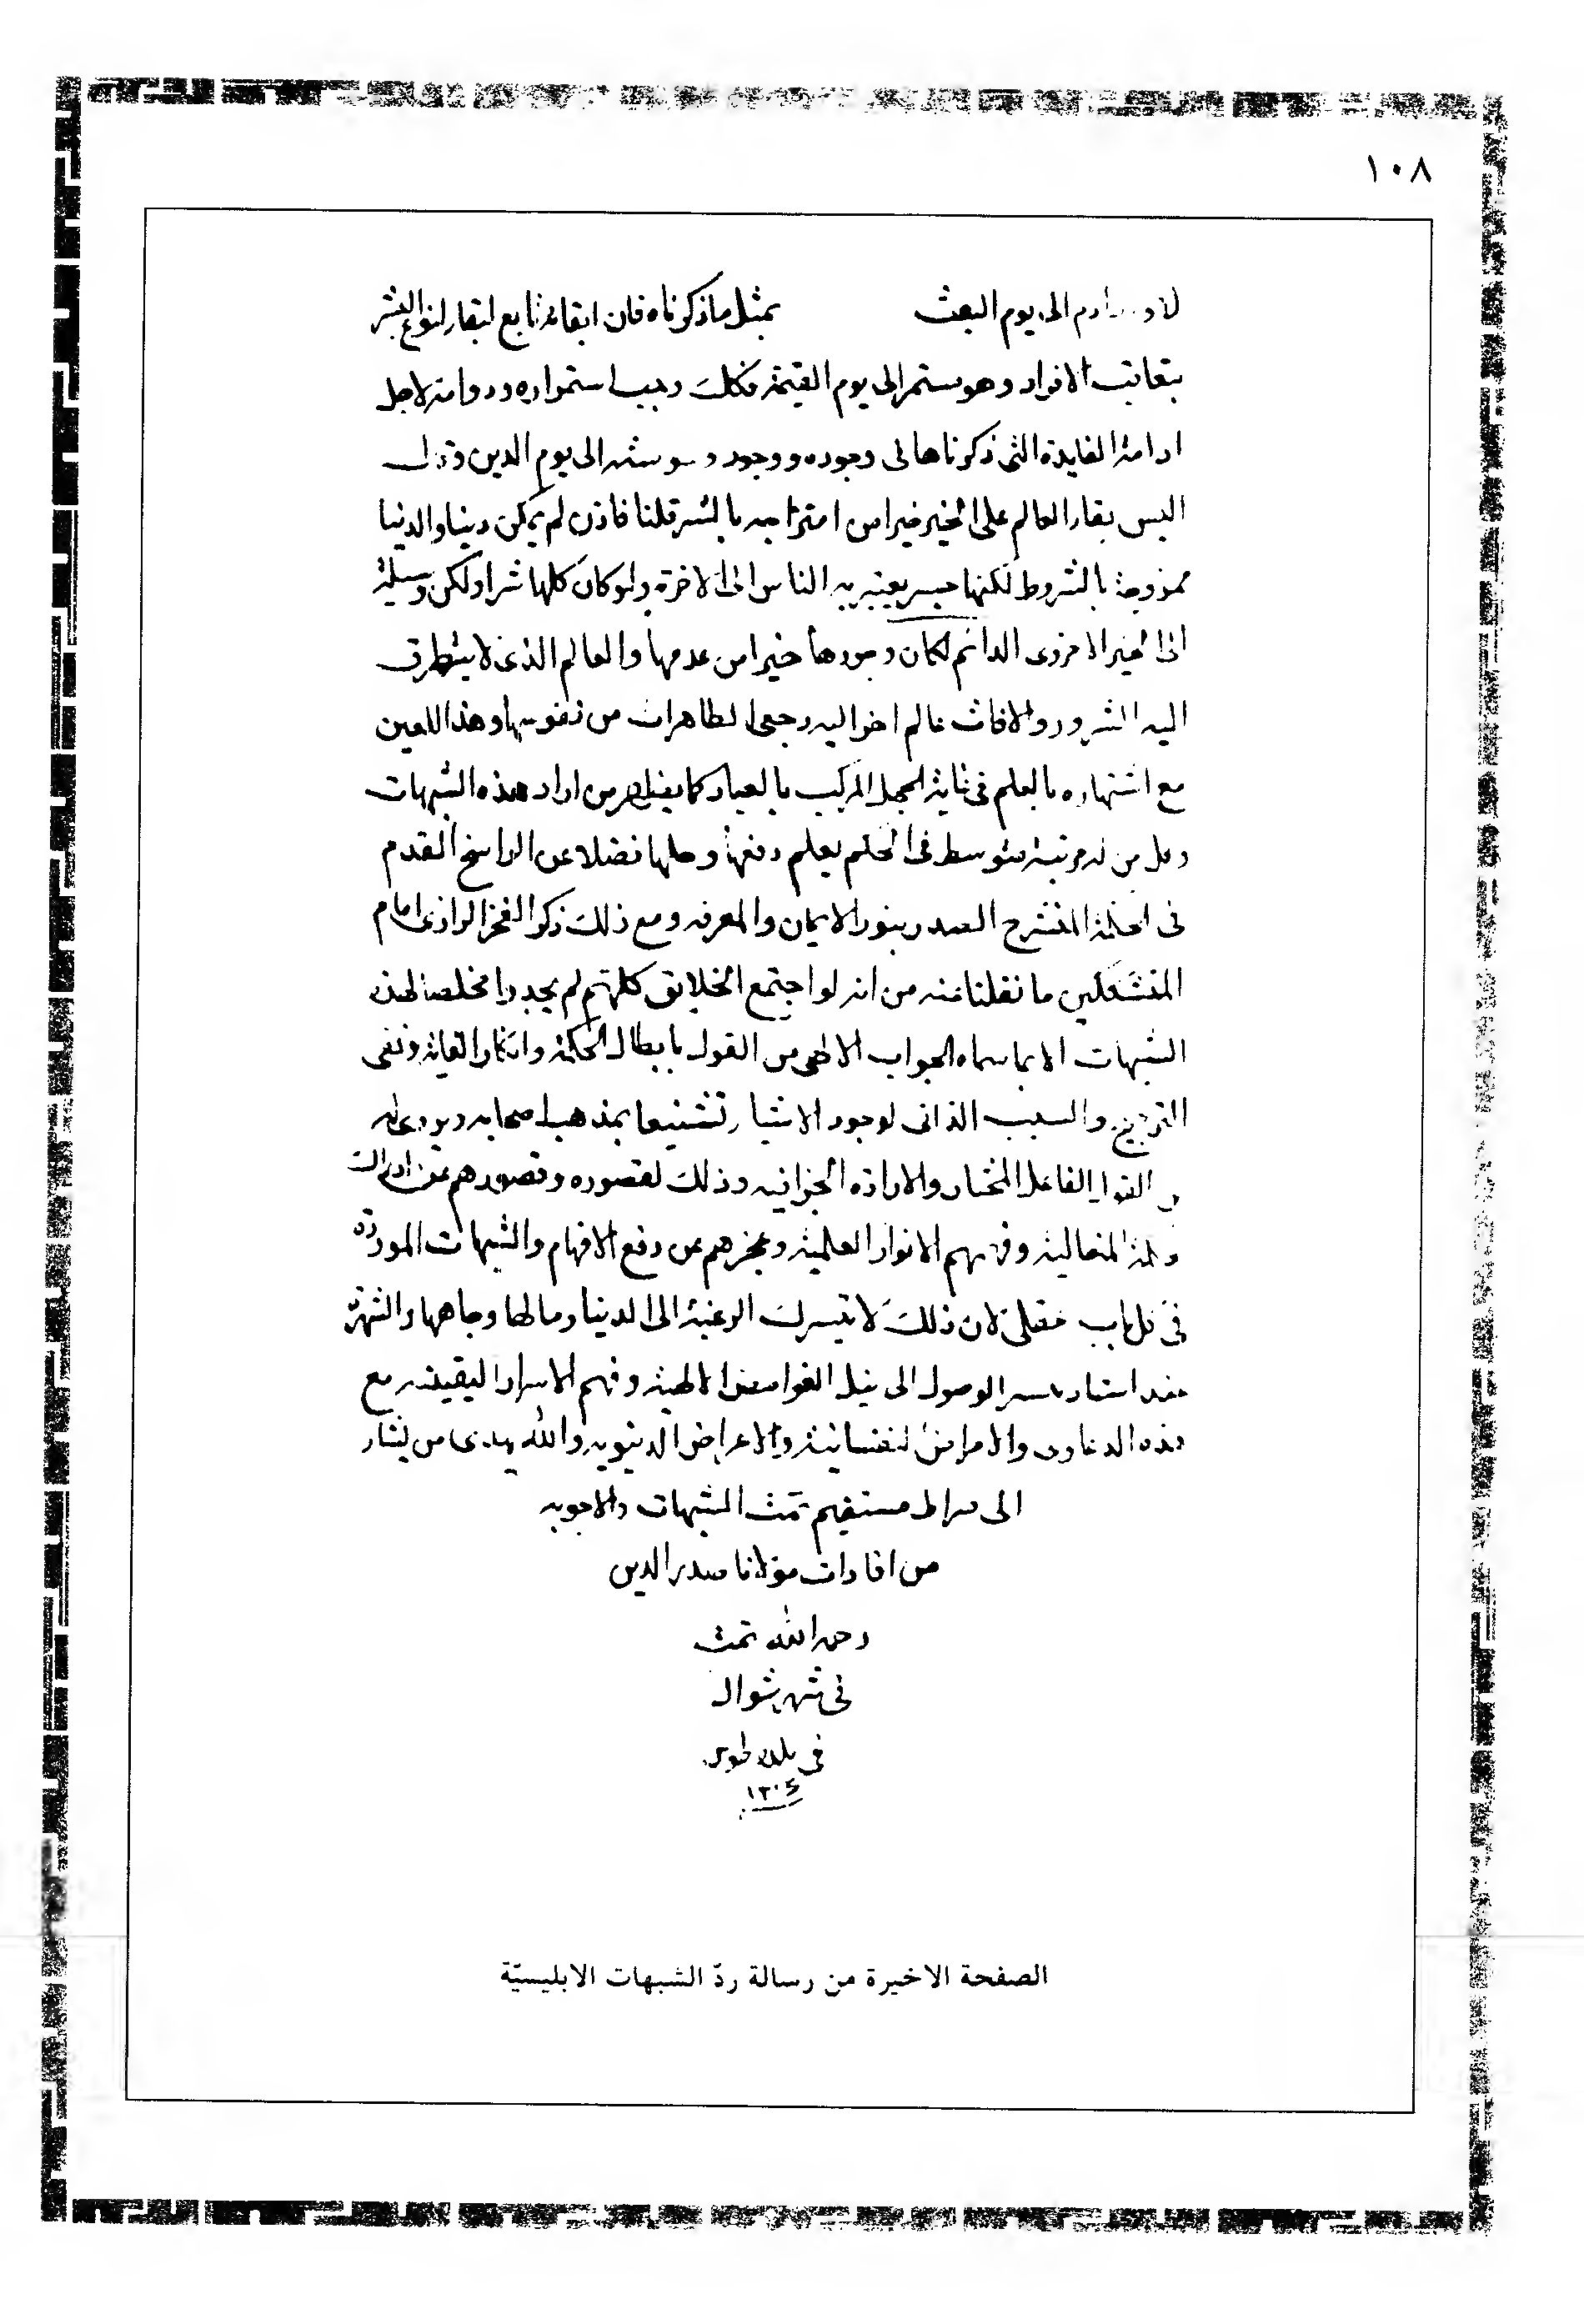 ١٠٨
الى يوم البعث بمثل ما ذكرناه فان ابقائه تابع لبقاء لنوع البشر
بتعاقب الافراد وهو مستمر الى يوم القيمة فكذلك وجب استمراره ودوامه لاجل
ادامة الفايدة التى ذكرناها فى وجوده ووجود وسوسته الى يوم الدين وقوله
اليس بقاء العالم على الخير خيرا من امتزاجه بالشر قلنا فاذن لم يكن دينا والدنيا
ممزوجة بالشرور لكنها جسر يعبر به الناس الى الاخرة ولو كان كلها شرا ولكن وسيلة
الى الخير الاخروى الدائم لكان وجودها خيرا من عدمها والعالم الذى لا يتطرق
اليه الشرور والافات عالم اخر اليه رجعى الطاهرات من نفوسها وهذا اللعين
مع اشتهاره بالعلم فى غاية الجهل المركب بالعباد كما يظهر من ايراد هذه الشبهات
وكل من له مرتبة متوسط فى الحكم يعلم دفعها وحلها فضلا عن الراسخ القدم
فى الحكمة المنشرح الصدر بنور الايمان والمعرفه ومع ذلك ذكر الفخر الرازى امام
المتشككين ما نقلنا عنه من انه لو اجتمع الخلايق كلهم لم يجدوا مخلصا لهذه
الشبهات الا بما سماه الجواب الالهى من القول بابطال الحكمة وانكار الغاية ونفى
الترجيح والسبب الذاتى لوجود الاشياء تشنيعا بمذهب اصحابه
القول الفاعل المختار والارادة الجزافيه وذلك لقصوره وقصورهم عن ادراك
المتعالية وفهم الانوار العلمية وعجزهم عن دفع الاوهام والشبهات الموردة
فى كل باب عقلى لان ذلك لا تيسر الرغبة الى الدنيا ومالها وجاهها والشهرة
عند الوصول الى نيل الغوامض الالهية وفهم الاسرار اليقينيه مع
هذه الدعاوى والامراض النفسانية والاعراض الدنيويه والله يهدى من يشاء
الى صراط مستقيم تمت الشبهات والاجوبه
من افادات مولانا صدر الدين
رحمه الله تمت
فى شهر شوال
فى بلدة
١٣٠٤
الصفحة الاخيرة من رسالة ردّ الشبهات الابليسيّة